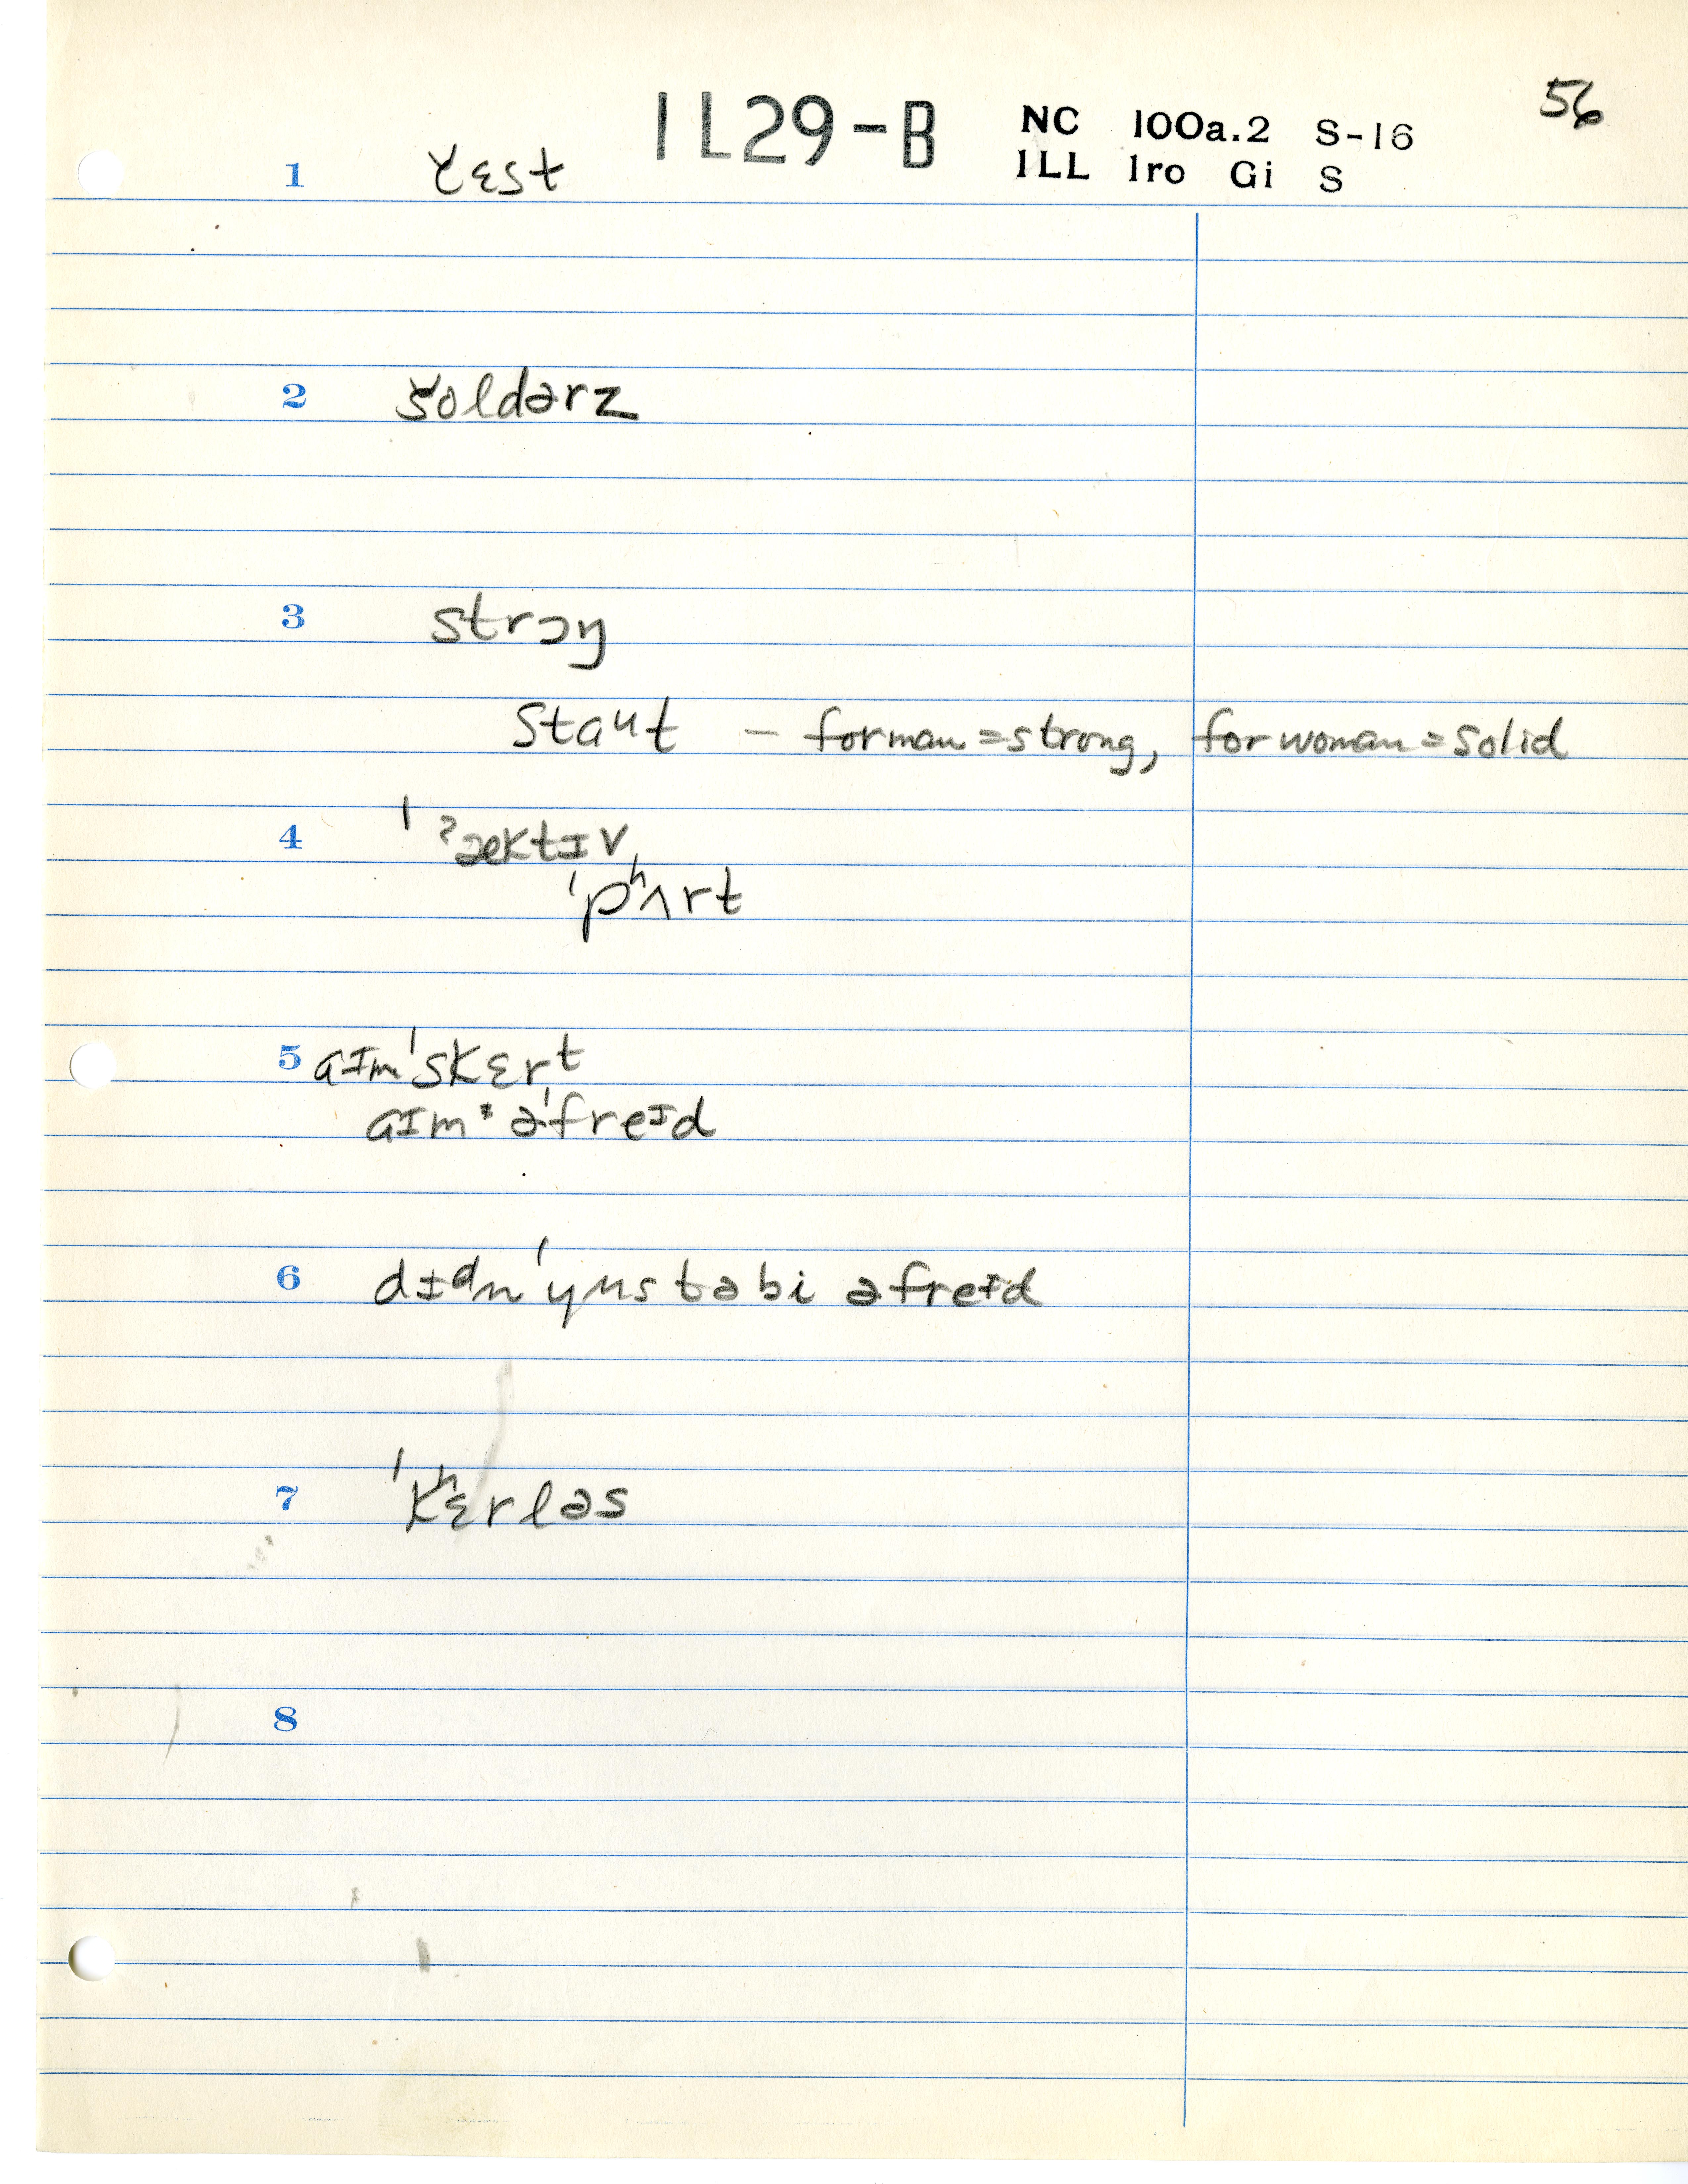 56
IL29-B NC 100a.2 S-16
ILL Iro Gi S
1 čɛst
2 šoldərz
3 strɔŋ
staut – for man = strong, for woman = solid
4 ˈʔæktɪv
ˈpʰʌrt
5 aɪm ˈskɛrt
aɪm əˈfreɪd
6 dɪdn ˈyus tə bi əfreɪd
7 ˈkʰɛrləs
8